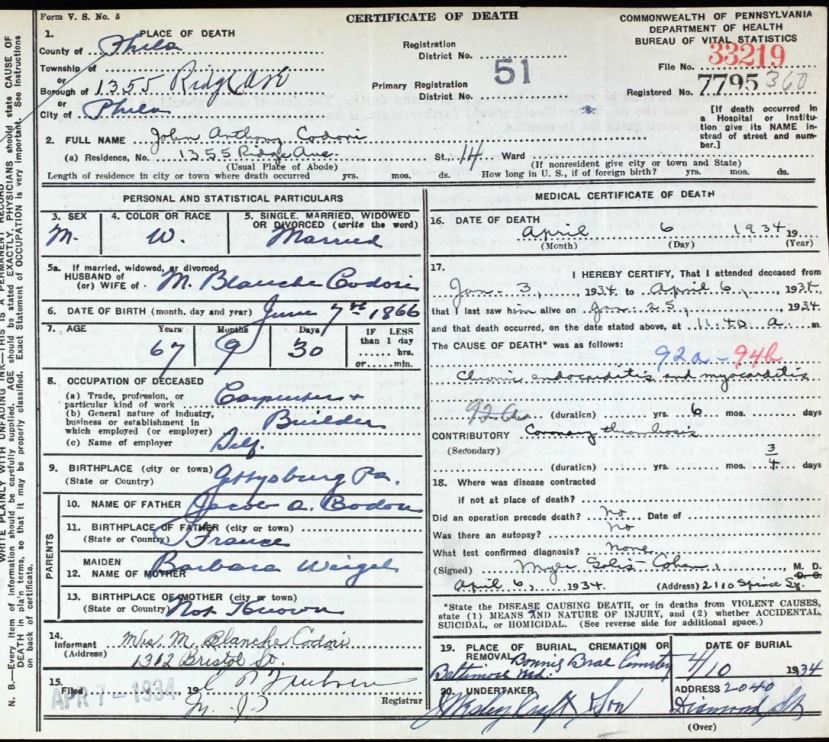 Form V. S. No. 5
CERTIFICATE OF DEATH
COMMONWEALTH OF PENNSYLVANIA
DEPARTMENT OF HEALTH
BUREAU OF VITAL STATISTICS
1. PLACE OF DEATH
County of Phila
Township of
or
Borough of 1355 Ridge Ave
or
City of Phila
Registration
District No. 51
Primary Registration
District No.
File No. 33219
Registered No. 7795 360
[If death occurred in
a Hospital or Institu-
tion give its NAME in-
stead of street and num-
ber.]
2. FULL NAME John Anthony Codori
(a) Residence, No. 1355 Ridge Ave St. 14 Ward
(Usual Place of Abode) (If nonresident give city or town and State)
Length of residence in city or town where death occurred yrs. mos. ds. How long in U. S., if of foreign birth? yrs. mos. ds.
PERSONAL AND STATISTICAL PARTICULARS
3. SEX M. 4. COLOR OR RACE W. 5. SINGLE, MARRIED, WIDOWED
OR DIVORCED (write the word) Married
5a. If married, widowed, or divorced
HUSBAND of
(or) WIFE of M. Blanche Codori
6. DATE OF BIRTH (month, day and year) June 7th 1866
7. AGE Years 67 Months 9 Days 30 IF LESS
than 1 day
hrs.
or min.
8. OCCUPATION OF DECEASED
(a) Trade, profession, or
particular kind of work Carpenter +
(b) General nature of industry,
business or establishment in
which employed (or employer) Builder
(c) Name of employer Self.
9. BIRTHPLACE (city or town) Gettysburg Pa.
(State or Country)
PARENTS
10. NAME OF FATHER Jacob A. Codori
11. BIRTHPLACE OF FATHER (city or town)
(State or Country) France
MAIDEN
12. NAME OF MOTHER Barbara Weigel
13. BIRTHPLACE OF MOTHER (city or town)
(State or Country) Not Known
14. Informant Mrs. M. Blanche Codori
(Address) 1312 Bristol St.
15. Filed APR 7 - 1934 19
Registrar
MEDICAL CERTIFICATE OF DEATH
16. DATE OF DEATH
April 6 1934 19
(Month) (Day) (Year)
17. I HEREBY CERTIFY, That I attended deceased from
Jan - 3, 1934 to April 6, 1934
that I last saw him alive on Jan 25, 1934
and that death occurred, on the date stated above, at 11:40 a m.
The CAUSE OF DEATH* was as follows:
92a - 94b
Chronic endocarditis and myocarditis
(duration) yrs. 6 mos. days
CONTRIBUTORY Coronary thrombosis
(Secondary)
(duration) yrs. mos. 3/4 days
18. Where was disease contracted
if not at place of death?
Did an operation precede death? No Date of
Was there an autopsy? No
What test confirmed diagnosis? None
(Signed) Myer Solis-Cohen, M. D.
April 6, 1934. (Address) 2110 Spruce St.
*State the DISEASE CAUSING DEATH, or in deaths from VIOLENT CAUSES,
state (1) MEANS AND NATURE OF INJURY, and (2) whether ACCIDENTAL,
SUICIDAL, or HOMICIDAL. (See reverse side for additional space.)
19. PLACE OF BURIAL, CREMATION OR
REMOVAL Bonnie Brae Cemetery
Baltimore Md.
DATE OF BURIAL
4/10 1934
20. UNDERTAKER
J Wesley Craft & Son
ADDRESS 2040
Diamond St
(Over)
N. B.—Every item of information should be carefully supplied. AGE should be stated EXACTLY. PHYSICIANS should state CAUSE OF
DEATH in plain terms, so that it may be properly classified. Exact Statement of OCCUPATION is very important. See instructions
on back of certificate.